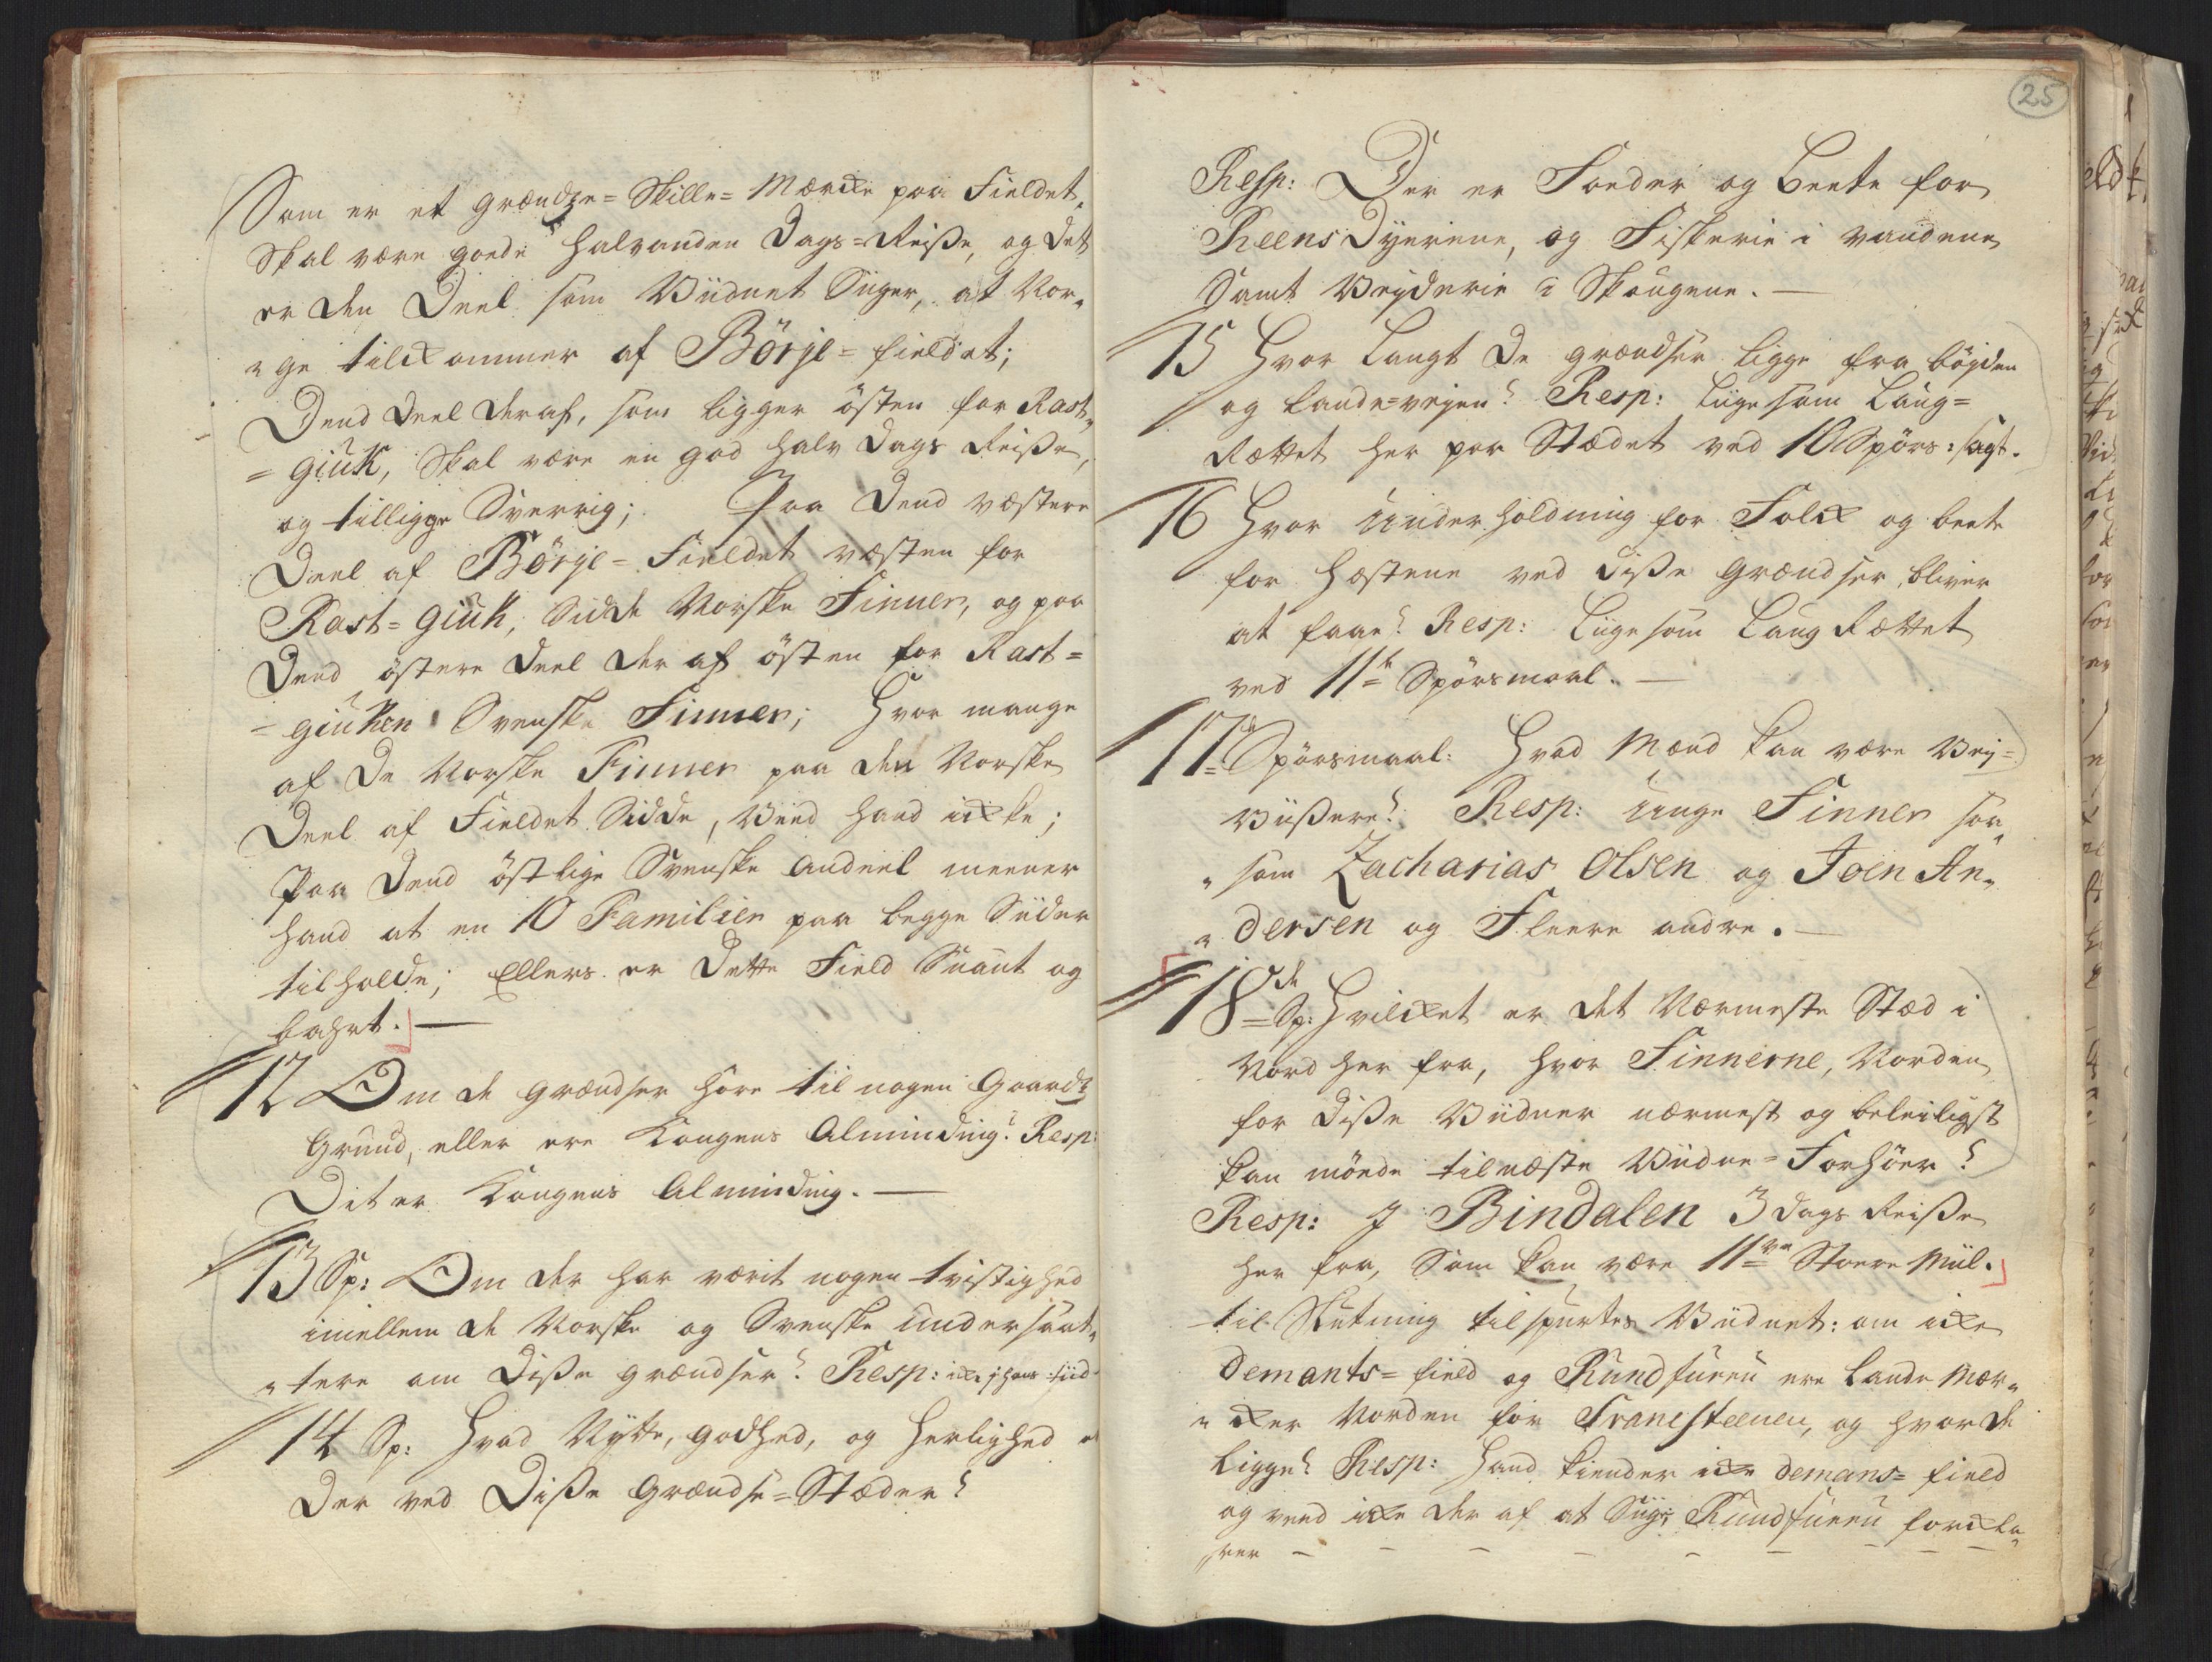 Som er et Grændze-Skille-Mærke paa Fieldet,
Skal være goede halvanden Dags-Reiße, og det
er den Deel som Viidnet Siiger, at Nor„
„ge tilkommer af Börje-fieldet;
Dend Deel deraf, som ligger östen for Rast„
=giuk, Skal være en god halv dags Reiße,
og tilligge Sverrig; Paa dend væstere
Deel af Börje-Fieldet væsten for
Rast=giuk, Sidde Norske Finner, og paa
Dend östere Deel der af östen for Rast=
=giuken Svenske Finner; Hvor mange
af de Norske Finner paa den Norske
Deel af Fieldet Sidde, Veed hand ikke;
Paa Dend östlige Svenske Andeel meener
hand at en 10 Familier paa begge Siider
tilholde; Ellers er dette Field Snaut og
bahrt. —
12 Om de Grændser höre til nogen Gaards
Grund, eller ere Kongens Alminding? Resp:
Det er Kongens Alminding. —
13 Sp: Om der har værit nogen tvistighed
imellem de Norske og Svenske Undersaat„
„tere om Diße grændser? Resp: ikke i hans tiid
14 Sp: Hvad Nytte, godhed, og Herlighed er
Der ved Diße Grændse-Stæder?
25
Resp: Der er Foeder og Beete for
Reens Dyerene, og Fiskerie i vandene
Samt Veyderie i Skougene. —
15 Hvor Langt De grændser ligge fra böyden
og Lande-veyen? Resp: Liigesom Laug=
Rættet her paa Stædet ved 10 Spörs: sagt.
16 Hvor Underholdning for Folk og beete
for Hæstene ved diße Grændser bliver
at faae? Resp: Liigesom Laug Rættet
ved 11te Spörsmaal. —
17de Spörsmaal: Hvad Mænd kan være Vey=
Viißere? Resp: Unge Finner saa„
„som Zacharias Olsen og Joen An„
„dersen og Fleere andre. —
18de Sp: Hvilket er det Nærmeste Stæd i
Nord her fra, hvor Finnerne, Norden
for diße Viidner nærmest og beleiligst
kan möede til næste Viidne-Forhöer?
Resp: I Bindalen 3 dags Reiße
her fra, Som kan være 11ve Stoere Miil.
til Slutning tilspurtes Viidnet: om ikke
Demants-field og Rundfuren ere Lande Mær„
„ker Norden for Tranesteenen, og hvor de
Ligge? Resp: Hand kiender ikke demans-field
og veed ikke der af at Siige; Rundfuren forkla„
„rer — — — — — — —